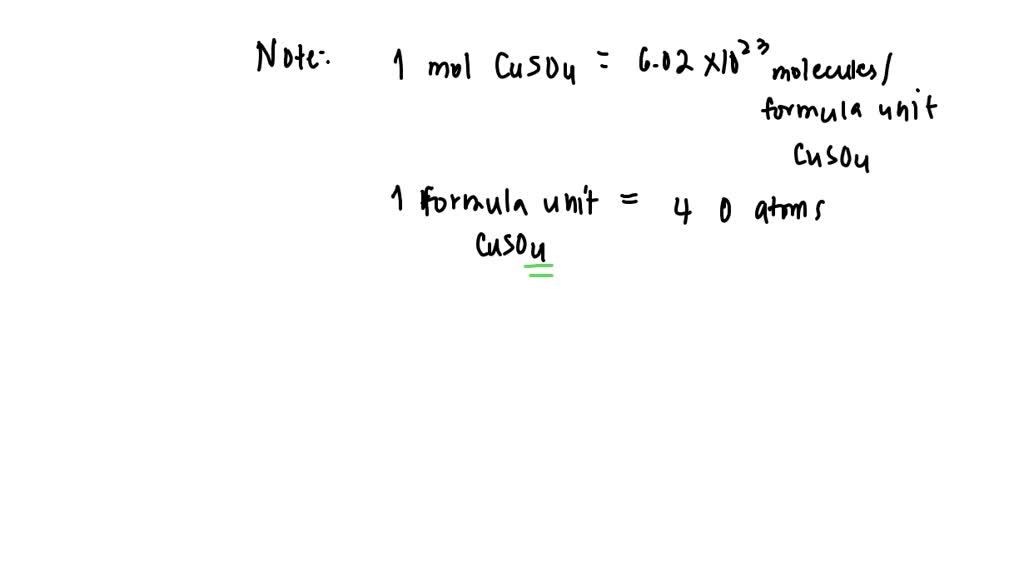 Note:. 1 mol CuSO4 = 6.02 x10^23 molecules/
formula unit
CuSO4
1 formula unit = 4 O atoms
CuSO4